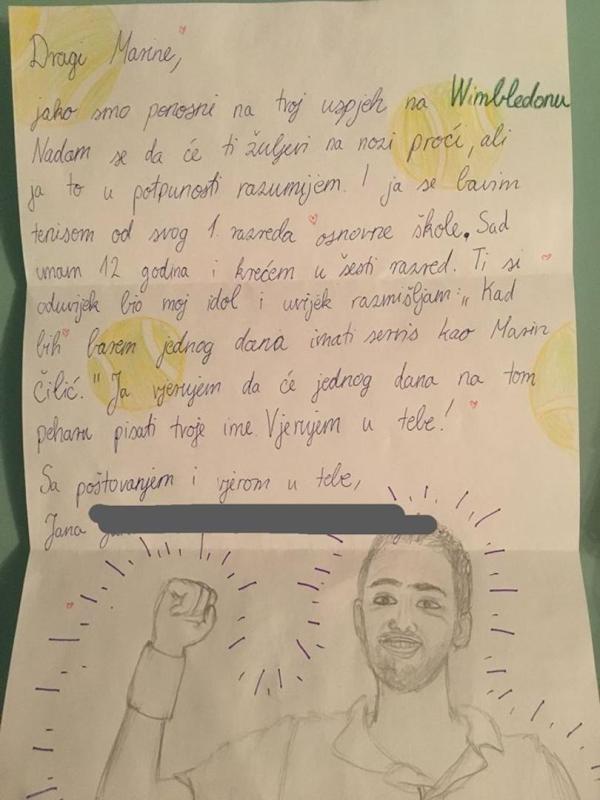 Dragi Marine,
jako smo ponosni na tvoj uspjeh na Wimbledonu
Nadam se da će ti žuljevi na nozi proći, ali
ja to u potpunosti razumijem. I ja se bavim
tenisom od svog 1. razreda osnovne škole. Sad
imam 12 godina i krećem u šesti razred. Ti si
oduvijek bio moj idol i uvijek razmišljam: „Kad
bih barem jednog dana imati servis kao Marin
Čilić." Ja vjerujem da će jednog dana na tom
peharu pisati tvoje ime. Vjerujem u tebe!
Sa poštovanjem i vjerom u tebe,
Jana